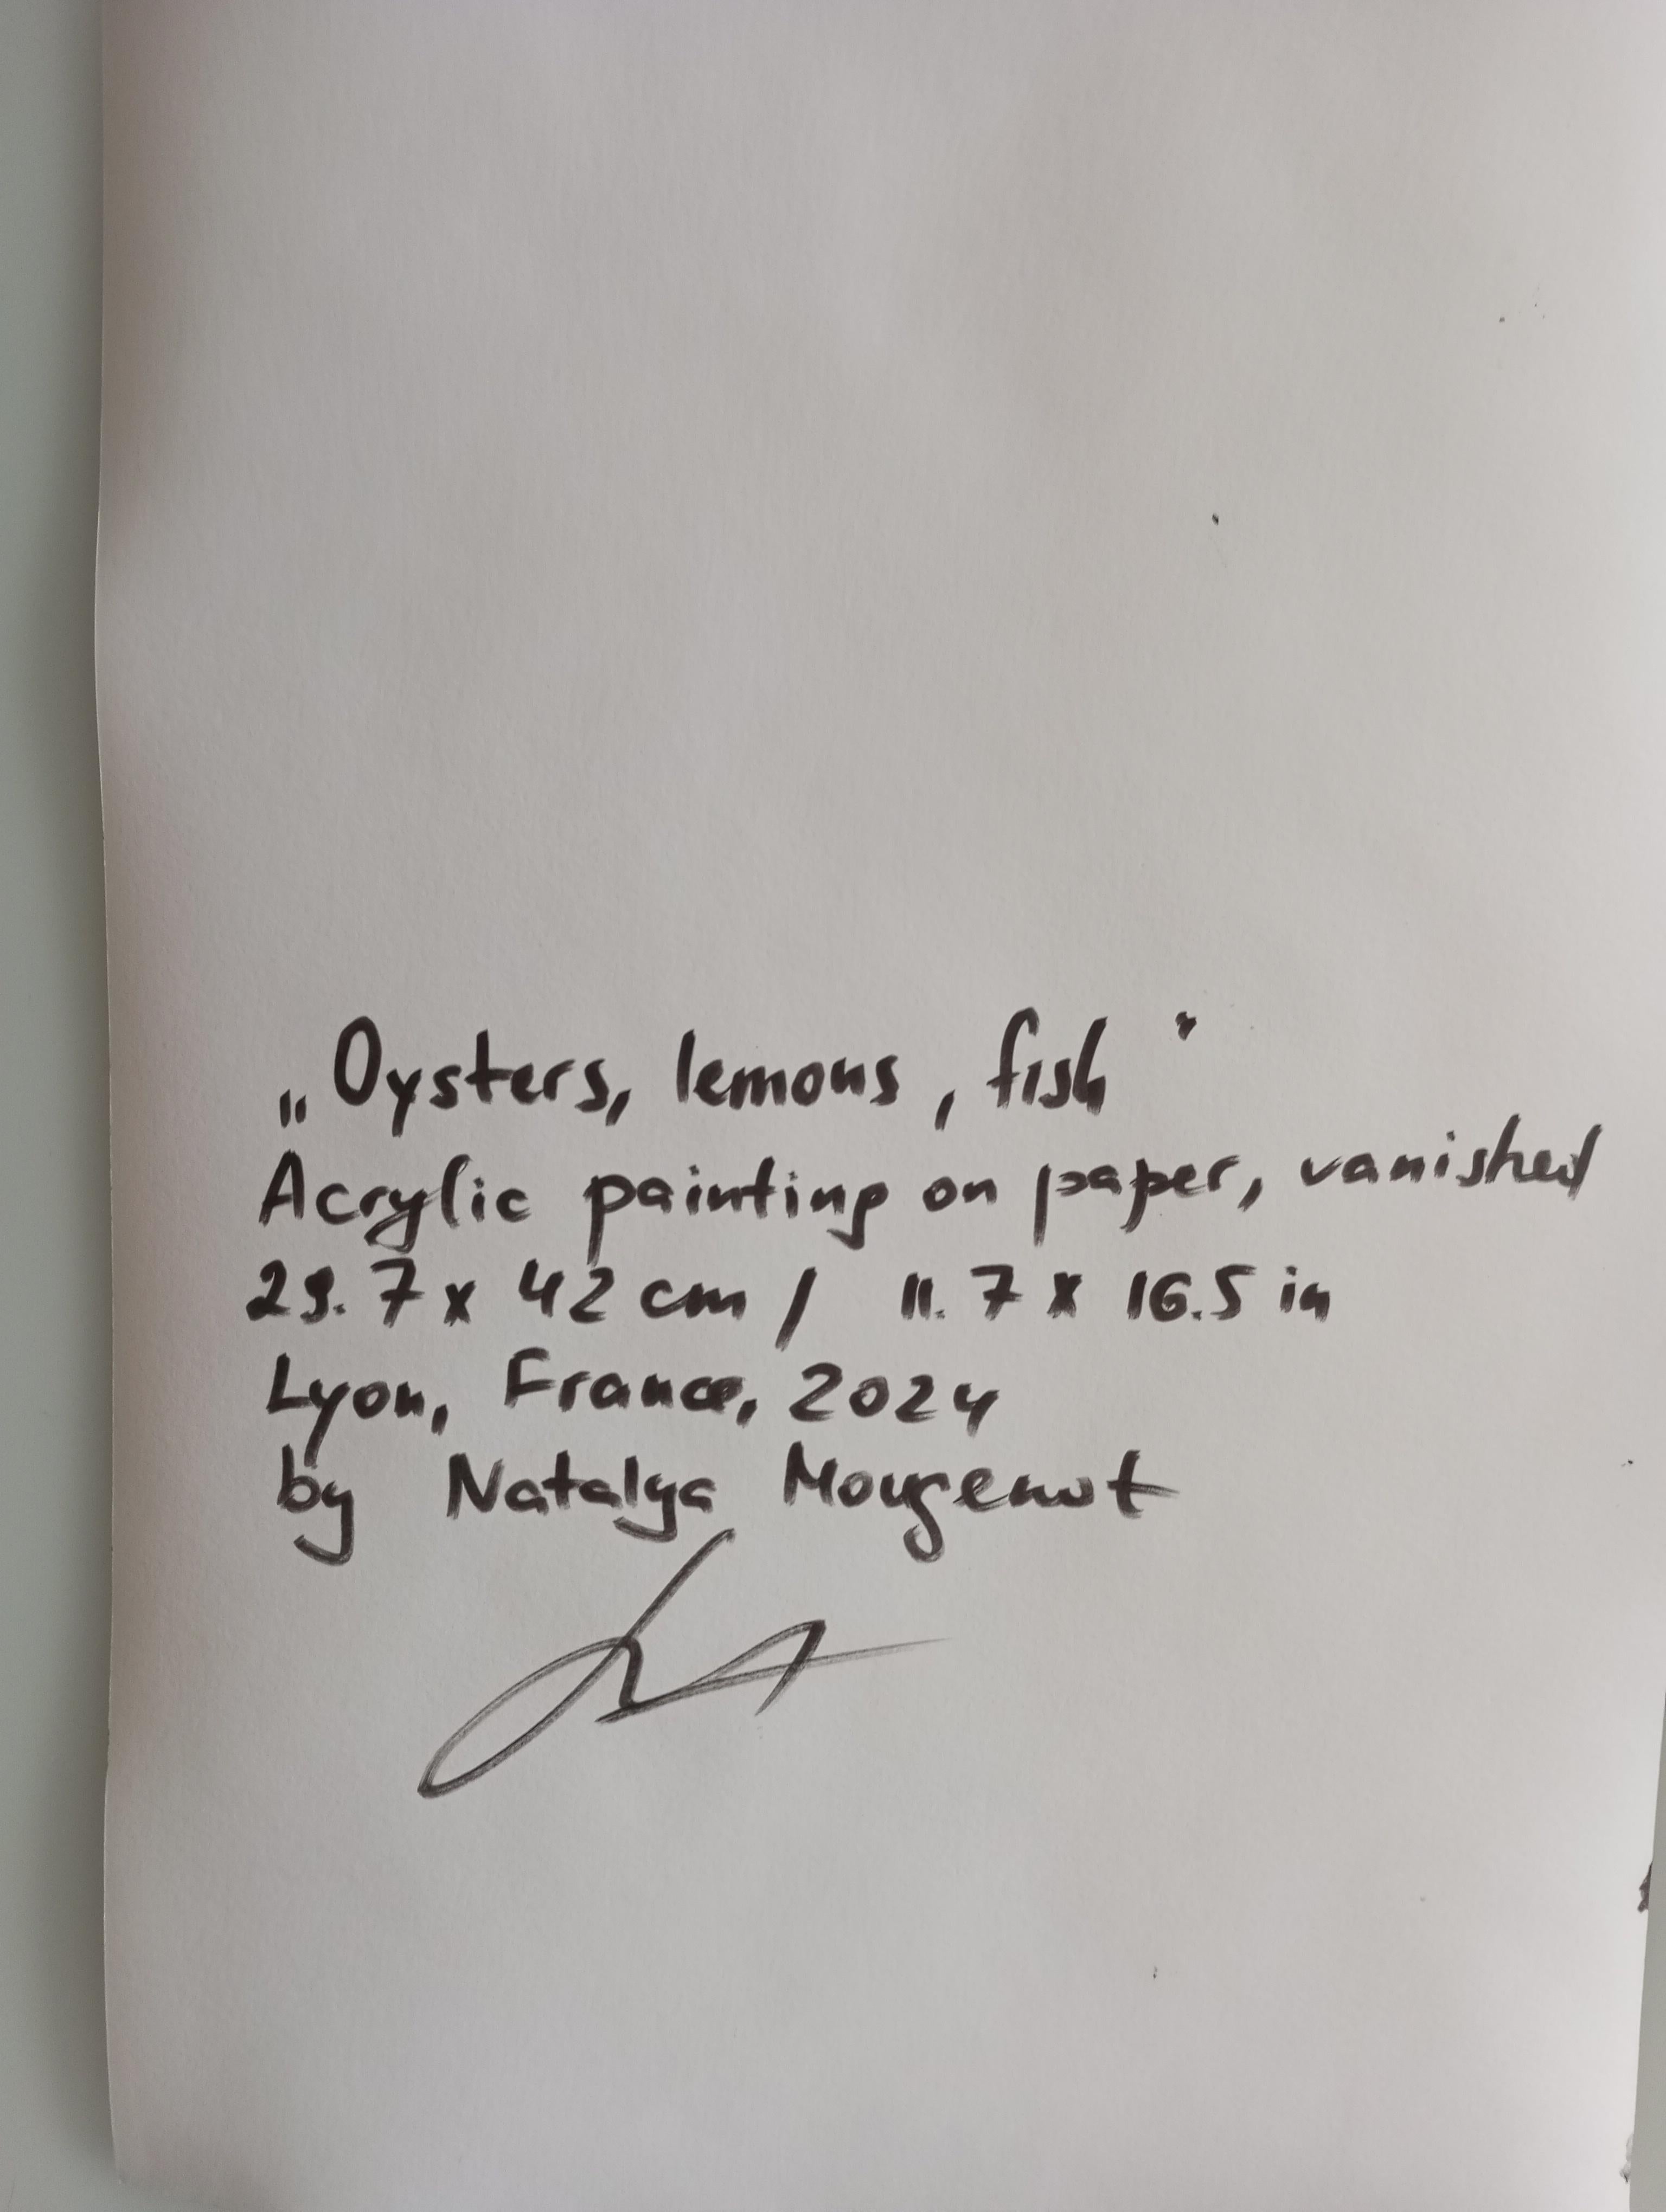 „Oysters, lemons, fish"
Acrylic painting on paper, vanished
29.7 x 42 cm / 11.7 x 16.5 in
Lyon, France, 2024
by Natalya Mougenot